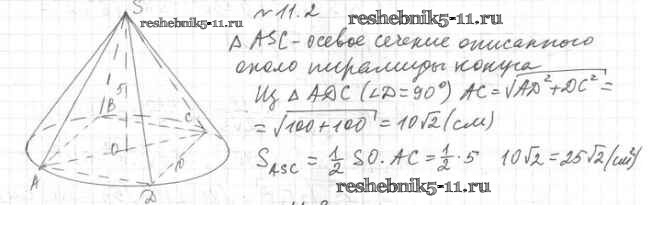 № 11.2
reshebnik5-11.ru
S
reshebnik5-11.ru
△ ASC - осевое сечение описанного
около пирамиды конуса
Из △ ADC (∠D=90°) AC = √(AD²+DC²) =
= √(100+100) = 10√2 (см)
S_ASC = 1/2 SO · AC = 1/2 · 5 10√2 = 25√2 (см²)
reshebnik5-11.ru
5
B
C
O
10
A
D